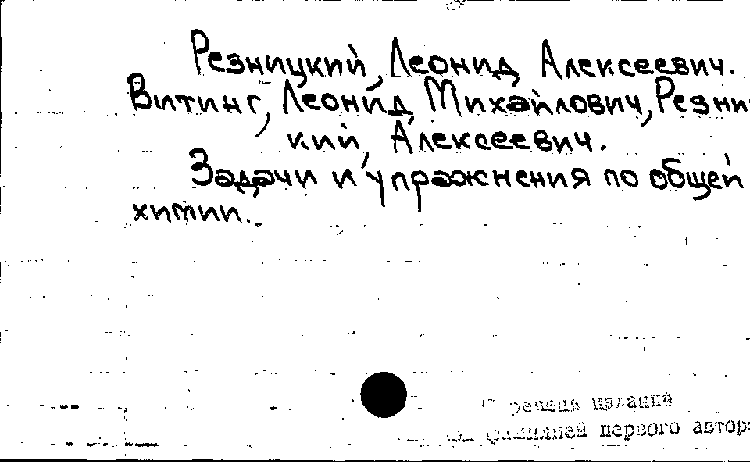 Резницкий, Леонид Алексеевич.
Витинг, Леонид Михайлович, Резни
кий, Алексеевич.
Задачи и упражнения по общей
химии.
издания
первого автор